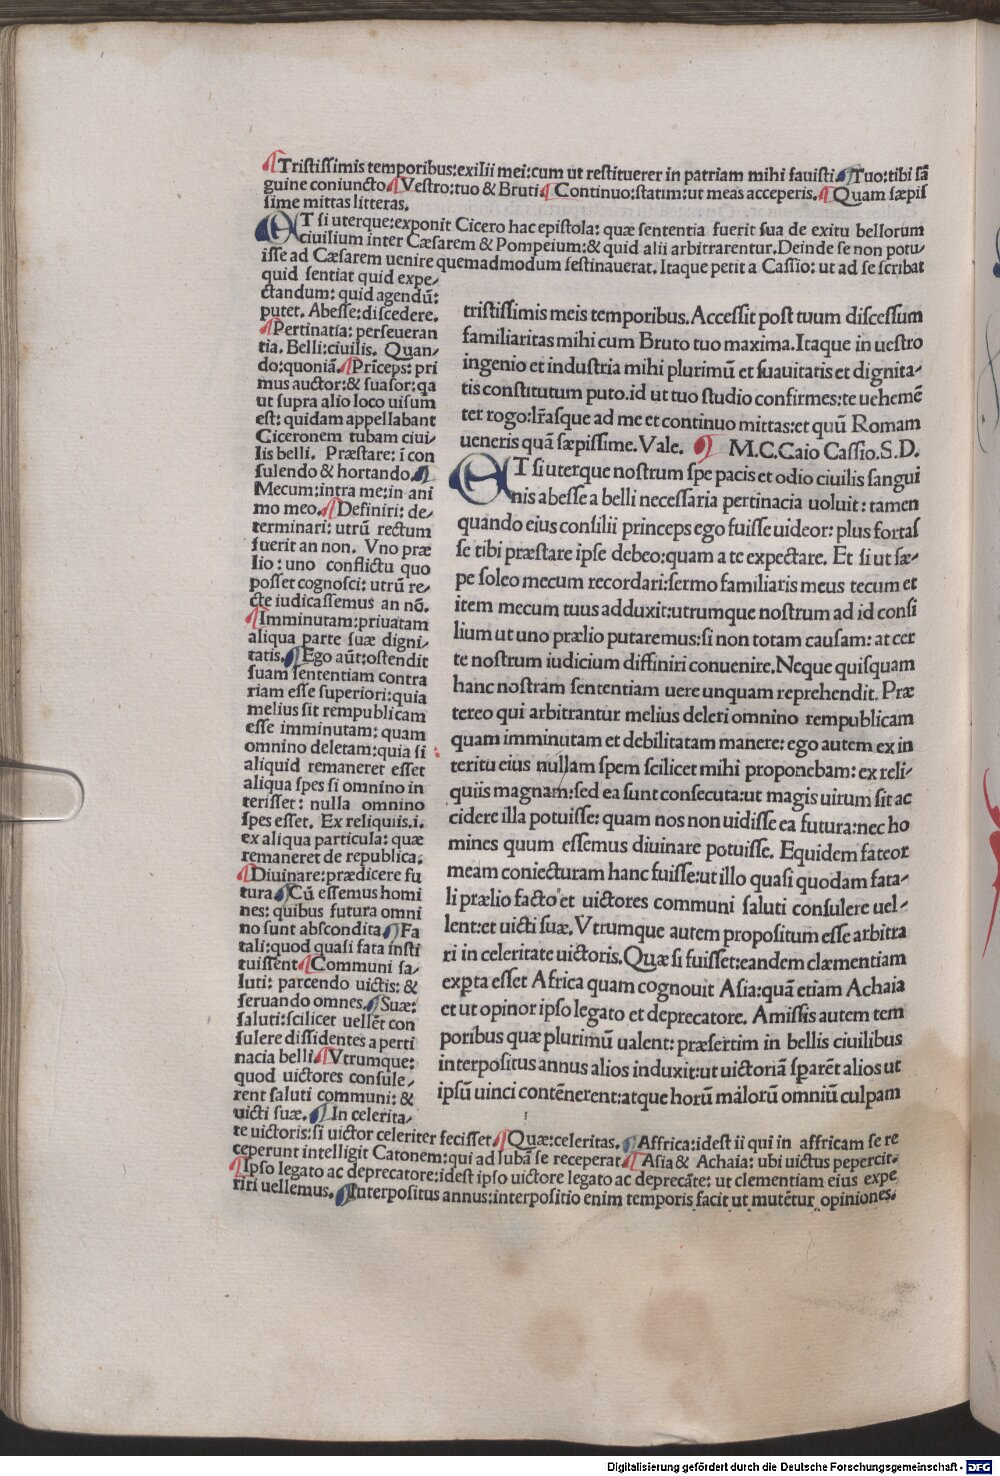 ¶Tristissimis temporibus:exilii mei:cum ut restituerer in patriam mihi fauisti¶Tuo:tibi sã
guine coniuncto¶Vestro:tuo & Bruti¶Continuo:statim:ut meas acceperis.¶Quam sæpis
sime mittas litteras.
ET si uterque:exponit Cicero hac epistola: quæ sententia fuerit sua de exitu bellorum
ciuilium inter Cæsarem & Pompeium:& quid alii arbitrarentur.Deinde se non potu-
isse ad Cæsarem uenire quemadmodum festinauerat. Itaque petit a Cassio: ut ad se scribat
quid sentiat quid expe-
ctandum: quid agendũ:
putet. Abesse:discedere.
¶Pertinatia: perseueran
tia. Belli:ciuilis. Quan-
do:quoniã.¶Prĩceps: pri
mus auctor:& suasor:qa
ut supra alio loco uisum
est: quidam appellabant
Ciceronem tubam ciui-
lis belli. Præstare: ĩ con
sulendo & hortando.¶
Mecum:intra me:in ani
mo meo.¶Definiri: de-
terminari: utrũ rectum
fuerit an non. Vno præ
lio: uno conflictu quo
posset cognosci: utrũ re-
cte iudicassemus an nõ.
¶Imminutam:priuatam
aliqua parte suæ digni-
tatis.¶Ego aũt:ostendit
suam sententiam contra
riam esse superiori:quia
melius sit rempublicam
esse imminutam: quam
omnino deletam:quia si
aliquid remaneret esset
aliqua spes si omnino in
terisset: nulla omnino
spes esset. Ex reliquiis.i.
ex aliqua particula: quæ
remaneret de republica:
¶Diuinare:prædicere fu
tura.¶Cũ essemus homi
nes: quibus futura omni
no sunt abscondita¶Fa
tali:quod quasi fata insti
tuissent¶Communi sa-
luti: parcendo uictis: &
seruando omnes.¶Suæ:
saluti:scilicet uellẽt con
sulere dissidentes a perti
nacia belli¶Vtrumque:
quod uictores consule-
rent saluti communi: &
uicti suæ.¶In celerita-
te uictoris:si uictor celeriter fecisset¶Quæ:celeritas.¶Affrica:idest ii qui in affricam se re
ceperunt intelligit Catonem:qui ad Iubam̃ se receperat¶Asia & Achaia: ubi uictus pepercit.
¶Ipso legato ac deprecatore:idest ipso uictore legato ac deprecãte: ut clementiam eius expe
riri uellemus.¶Interpositus annus:interpositio enim temporis facit ut mutẽtur opiniones.
tristissimis meis temporibus. Accessit post tuum discessum
familiaritas mihi cum Bruto tuo maxima.Itaque in uestro
ingenio et industria mihi plurimũ et suauitatis et dignita-
tis constitutum puto.id ut tuo studio confirmes:te uehemẽ
ter rogo:lr̃asque ad me et continuo mittas:et quũ Romam
ueneris quã sæpissime.Vale. ¶ M.C.Caio Cassio.S.D.
ET si uterque nostrum spe pacis et odio ciuilis sangui
nis abesse a belli necessaria pertinacia uoluit: tamen
quando eius consilii princeps ego fuisse uideor: plus fortas
se tibi præstare ipse debeo:quam a te expectare. Et si ut sæ-
pe soleo mecum recordari:sermo familiaris meus tecum et
item mecum tuus adduxit:utrumque nostrum ad id consi
lium ut uno prælio putaremus:si non totam causam: at cer
te nostrum iudicium diffiniri conuenire.Neque quisquam
hanc nostram sententiam uere unquam reprehendit. Præ
tereo qui arbitrantur melius deleri omnino rempublicam
quam imminutam et debilitatam manere: ego autem ex in
teritu eius nullam spem scilicet mihi proponebam: ex reli-
quiis magnam:sed ea sunt consecuta:ut magis uirum sit ac
cidere illa potuisse: quam nos non uidisse ea futura:nec ho
mines quum essemus diuinare potuisse. Equidem fateor
meam coniecturam hanc fuisse:ut illo quasi quodam fata-
li prælio facto et uictores communi saluti consulere uel-
lent:et uicti suæ. Vtrumque autem propositum esse arbitra
ri in celeritate uictoris.Quæ si fuisset:eandem clæmentiam
exp̱ta esset Africa quam cognouit Asia:quã etiam Achaia
et ut opinor ipso legato et deprecatore. Amissis autem tem
poribus quæ plurimũ ualent: præsertim in bellis ciuilibus
interpositus annus alios induxit:ut uictoriã sparẽt alios ut
ipsũ uinci contẽnerent:atque horũ malorũ omniũ culpam
Digitalisierung gefördert durch die Deutsche Forschungsgemeinschaft - DFG